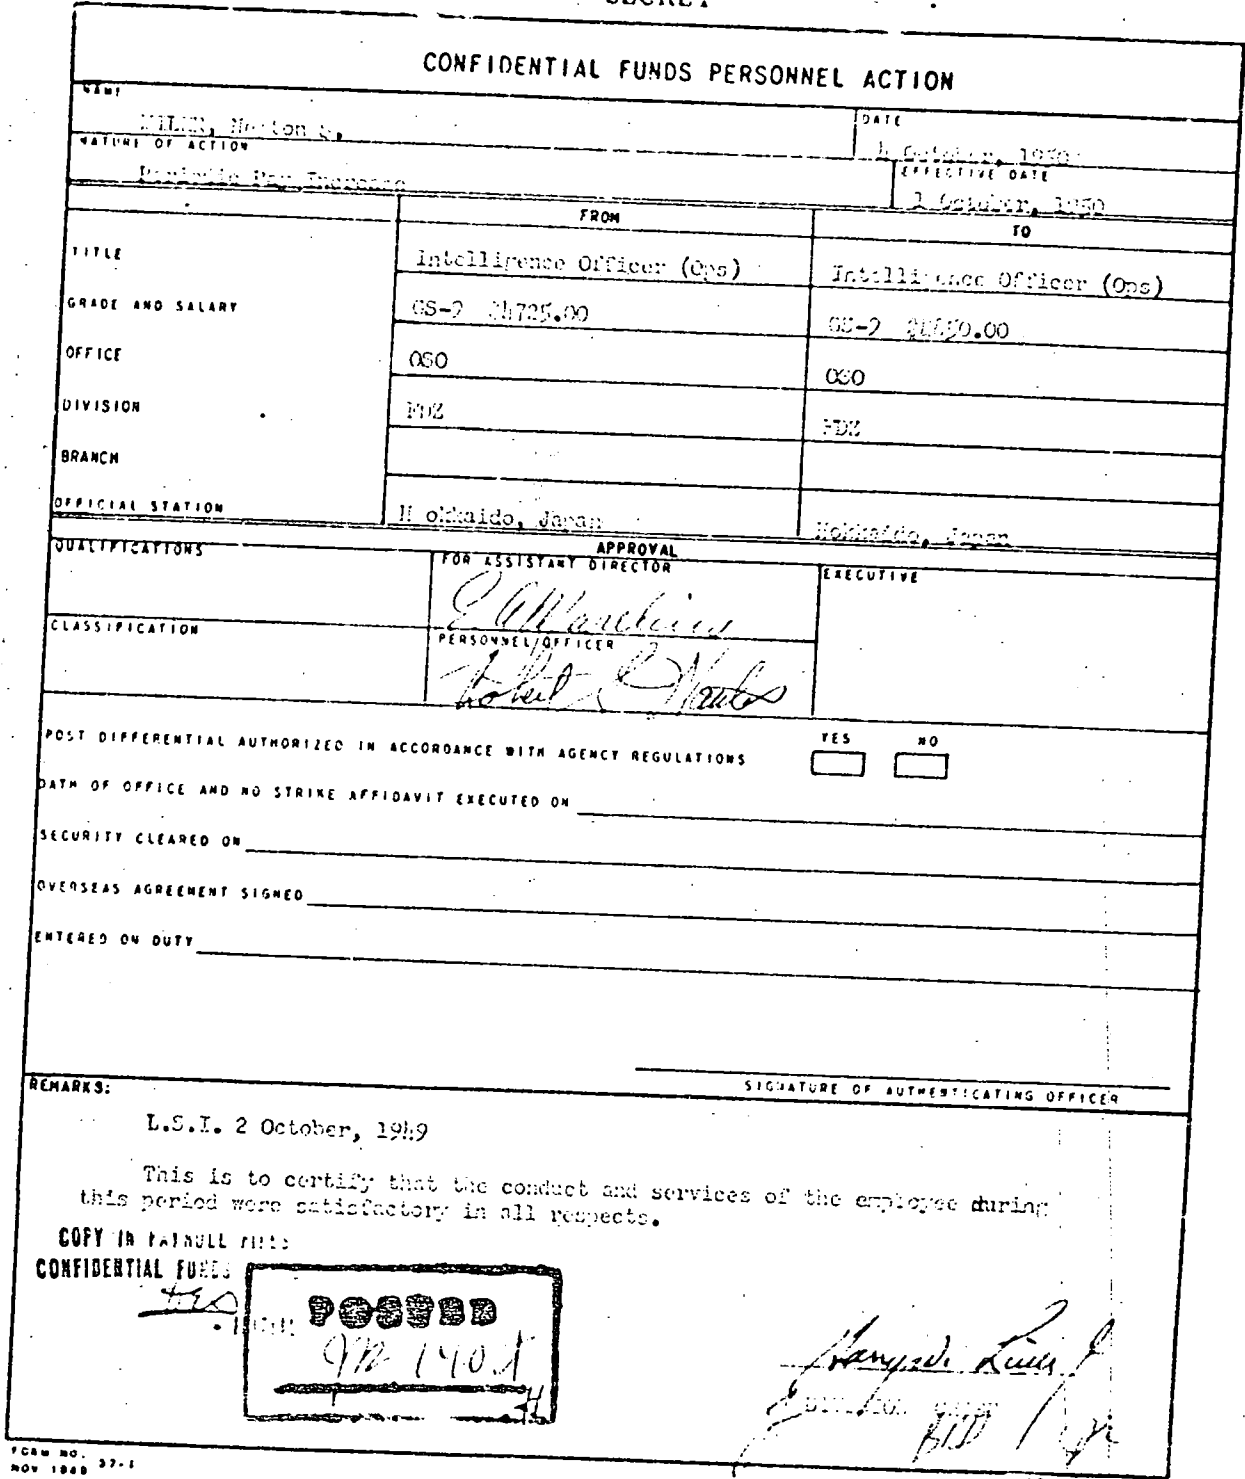 SECRET
CONFIDENTIAL FUNDS PERSONNEL ACTION
NAME
DATE
4 October, 1950
NATURE OF ACTION
Periodic Pay Increase
EFFECTIVE DATE
1 October, 1950
FROM
TO
TITLE
Intelligence Officer (Ops)
Intelligence Officer (Ops)
GRADE AND SALARY
GS-9 $4725.00
GS-9
OFFICE
OSO
OSO
DIVISION
FDZ
FDZ
BRANCH
OFFICIAL STATION
H okkaido, Japan
Hokkaido, Japan
APPROVAL
QUALIFICATIONS
FOR ASSISTANT DIRECTOR
EXECUTIVE
CLASSIFICATION
PERSONNEL OFFICER
Robert
POST DIFFERENTIAL AUTHORIZED IN ACCORDANCE WITH AGENCY REGULATIONS
YES NO
OATH OF OFFICE AND NO STRIKE AFFIDAVIT EXECUTED ON
SECURITY CLEARED ON
OVERSEAS AGREEMENT SIGNED
ENTERED ON DUTY
SIGNATURE OF AUTHENTICATING OFFICER
REMARKS:
L.S.I. 2 October, 1949
This is to certify that the conduct and services of the employee during
this period were satisfactory in all respects.
COPY IN PAYROLL FILES
CONFIDENTIAL FUNDS
POSTED
DIVISION
FORM NO. 37-1
NOV 1949